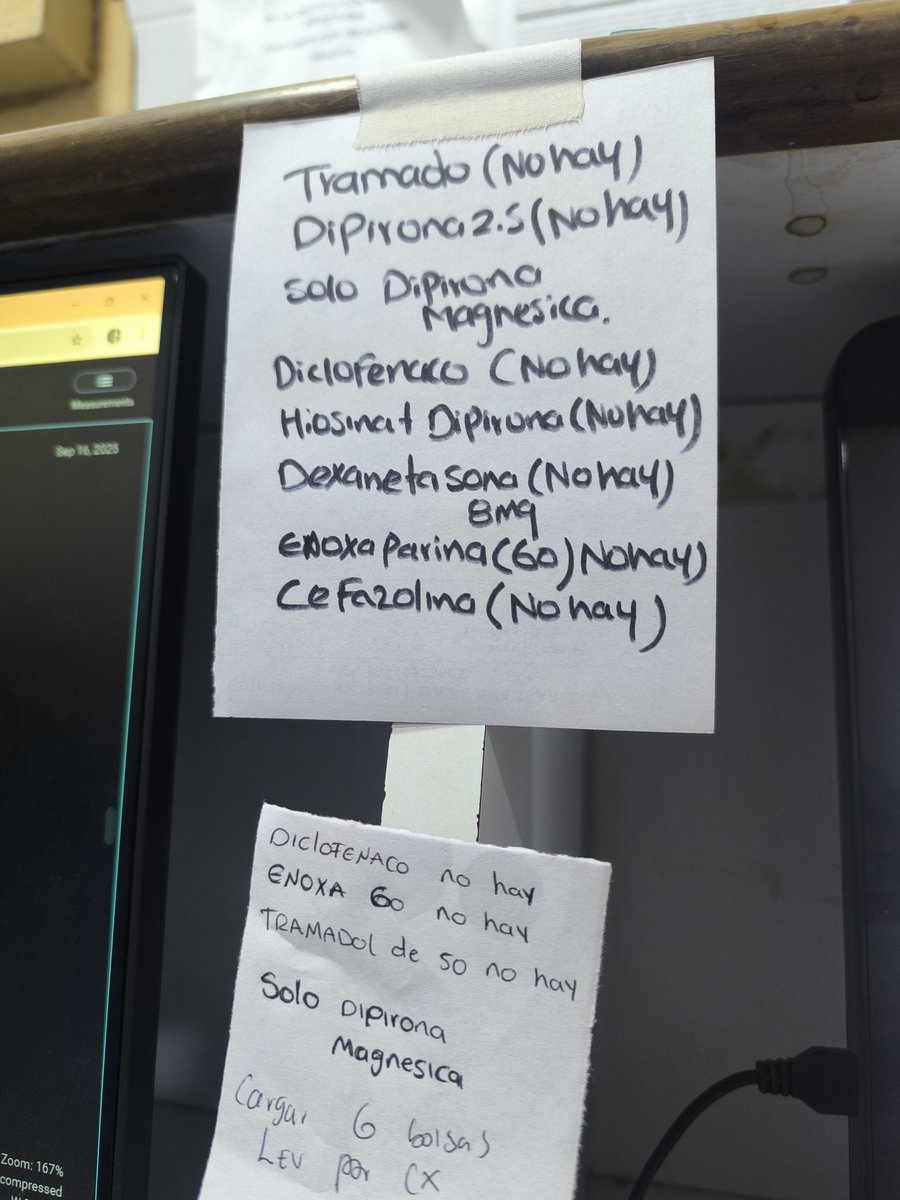 Tramado (No hay)
Dipirona 2.5 (No hay)
Solo Dipirona
Magnesica.
Diclofenaco (No hay)
Hiosina+ Dipirona (No hay)
Dexanetasona (No hay)
8mg
Enoxaparina (60) No hay)
Cefazolina (No hay)
DICLOFENACO no hay
ENOXA 60 no hay
TRAMADOl de 50 no hay
Solo DIPIrona
Magnesica
Cargar 6 bolsas
LEV por CX
Measurements
Sep 16, 2025
Zoom: 167%
compressed